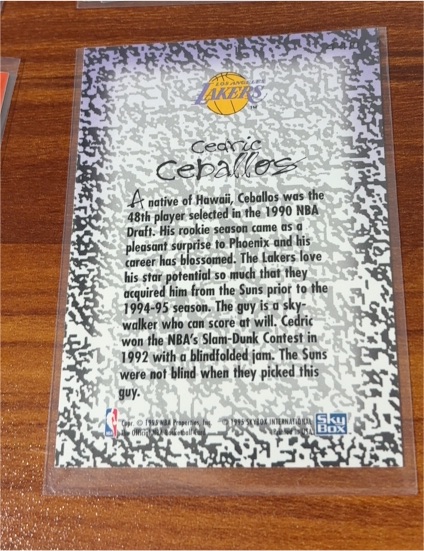 LOS ANGELES
LAKERS
TM
Cedric
Ceballos
A native of Hawaii, Ceballos was the
48th player selected in the 1990 NBA
Draft. His rookie season came as a
pleasant surprise to Phoenix and his
career has blossomed. The Lakers love
his star potential so much that they
acquired him from the Suns prior to the
1994-95 season. The guy is a sky-
walker who can score at will. Cedric
won the NBA's Slam-Dunk Contest in
1992 with a blindfolded jam. The Suns
were not blind when they picked this
guy.
Copr. © 1995 NBA Properties, Inc. © 1995 SKYBOX INTERNATIONAL
The Official NBA Basketball Card Printed in USA
NBA
SKY
BOX